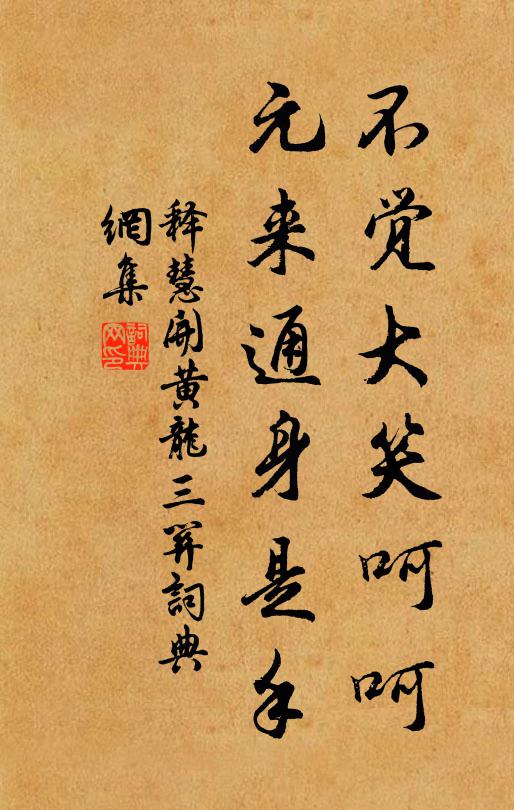 不觉大笑呵呵
元来通身是手
释慧开黄龙三关词典
網集
詞典
网印